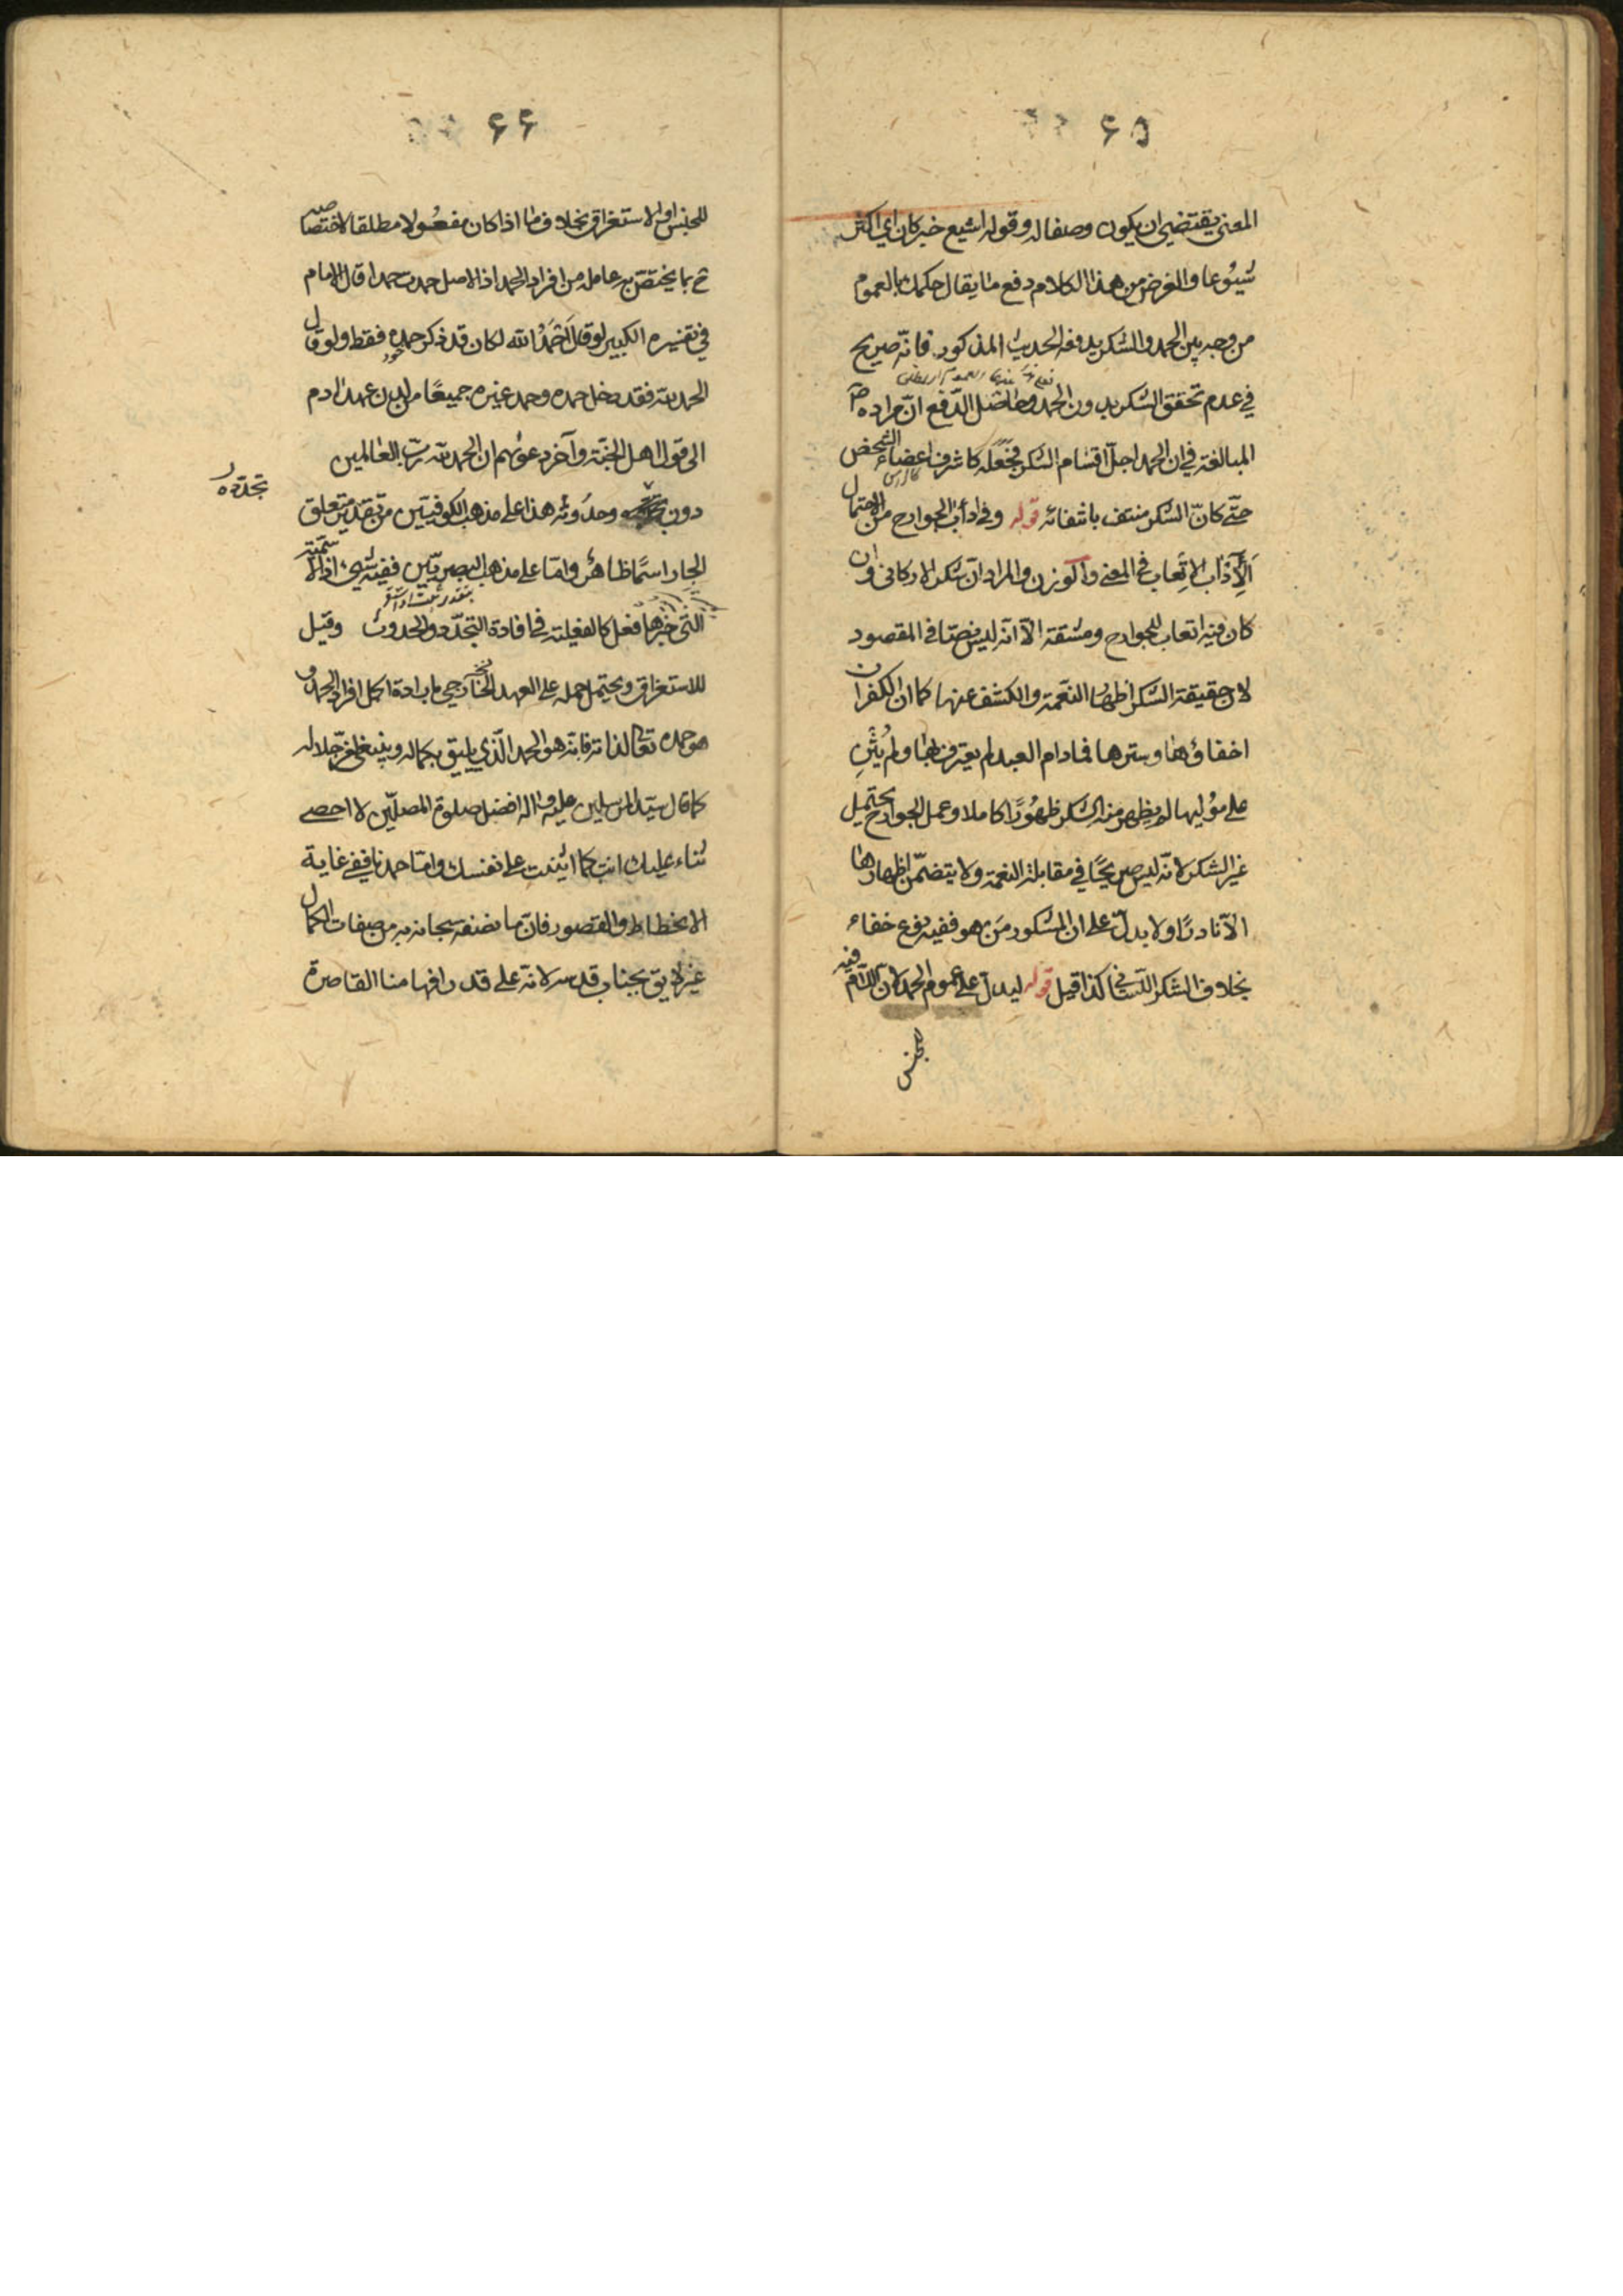 ٦٥
المعنى يقتضي ان يكون وصفا له وقوله اشيع خبر كان اي اكثر
شيوعا والغرض من هذا الكلام دفع ما يقال حكمك بالعموم
من وجه بين الحمد والشكر يدفعه الحديث المذكور فانه صريح
في عدم تحقق الشكر بدون الحمد وحاصل الدفع ان مراده
المبالغة في ان الحمد اجل اقسام الشكر فجعله كاشرف اعضاء الشخص
حتى كان الشكر منتف بانتفائه قوله وفي ادآب الجوارح من الاحتمال
الآدآب الاتعاب في المعنى والوزن والمراد ان شكر الاركاني وان
كان فيه اتعاب للجوارح ومشقة الا انه ليس نصا في المقصود
لان حقيقة الشكر اظهار النعمة والكشف عنها كما ان الكفران
اخفاؤها وسترها فما دام العبد لم يعترف بها ولم يثن
على موليها لم يظهر منه الشكر ظهورا كاملا وعمل الجوارح يحتمل
غير الشكر لانه ليس صريحا في مقابلة النعمة ولا يتضمن اظهارها
الا نادرا ولا يدل على ان المشكور من هو ففيه نوع خفاء
بخلاف الشكر اللساني كذا قيل قوله ليدل على عموم الحمد لان اللام فيه
للجنس
٦٦
للجنس او الاستغراق بخلاف ما اذا كان مفعولا مطلقا لاختصاصه
ح بما يختص به عامله من افراد الحمد اذ الاصل حمدت حمدا قال الامام
في تفسيره الكبير لو قال احمد الله لكان قد ذكر حمده فقط ولو قال
الحمد لله فقد دخل حمده وحمد غيره جميعا من لدن عهد ادم
الى قول اهل الجنة وآخر دعوىهم ان الحمد لله رب العالمين
دون وحدوثه هذا على مذهب الكوفيين من تقدير متعلق
تجدده
الجار اسما ظاهر واما على مذهب البصريين ففيه شيء اذ الاسمية
التي خبرها فعل كالفعلية في افادة التجدد والحدوث وقيل
للاستغراق ويحتمل حمله على العهد الخارجي بارادة اكمل افراد الحمد و
هو حمده تعالى لذاته فانه هو الحمد الذي يليق بكماله وينبغي لعز جلاله
كما قال سيد المرسلين عليه واله افضل صلوة المصلين لا احصي
ثناء عليك انت كما اثنيت على نفسك واما حمدنا ففي غاية
الانحطاط والقصور فان ما نصفه سبحانه به من صفات الكمال
غير لايق بجناب قدسه لانه على قدر افهامنا القاصرة